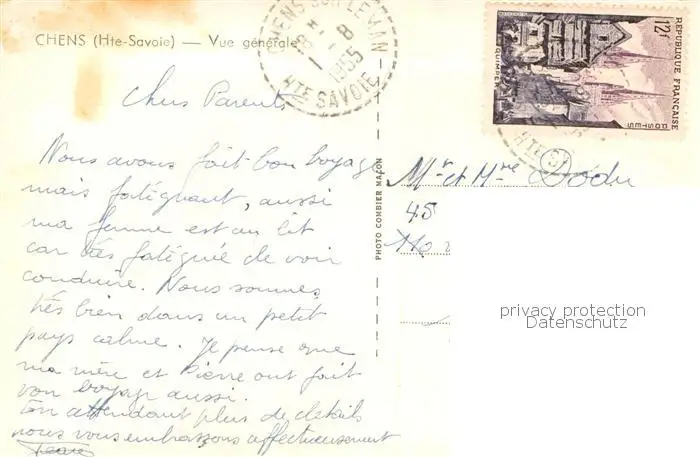 CHENS (Hte-Savoie) — Vue générale
CHENS SUR LEMAN
18 H
8
1955
HTE SAVOIE
12F
RÉPUBLIQUE FRANÇAISE
POSTES
QUIMPER
Chers Parents
Nous avons fait bon voyage
mais fatiguant, aussi
ma femme est au lit
car très fatiguée de voir
conduire. Nous sommes
très bien dans un petit
pays calme. Je pense que
ma mère et Pierre ont fait
bon voyage aussi.
En attendant plus de details
nous vous embrassons affectueusement
PHOTO COMBIER MACON
Mr et Mme Dodu
45
privacy protection
Datenschutz